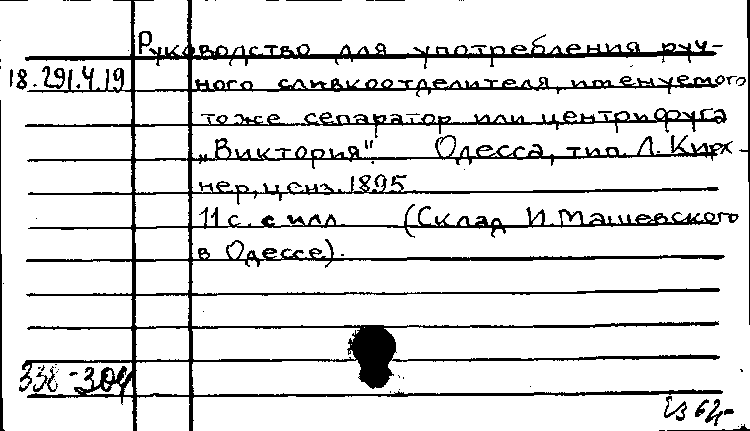 Руководство для употребления руч-
18.291.4.19 ного сливкоотделителя, именуемого
тоже сепаратор или центрифуга
„Виктория". Одесса, тип. Л. Кирх-
нер, ценз. 1895.
11 с. с илл. (Склад И. Машевского
в Одессе).
338-304